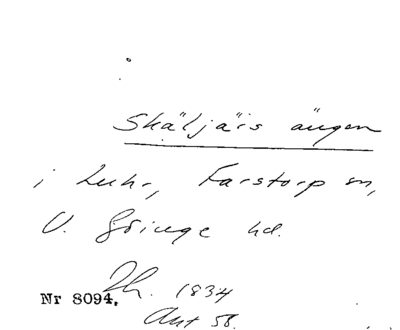 Skäljärs ängen
i Luhr, Farstorp sn,
V. Göinge hd.
Nr 8094. Th. 1834
Ant 58.